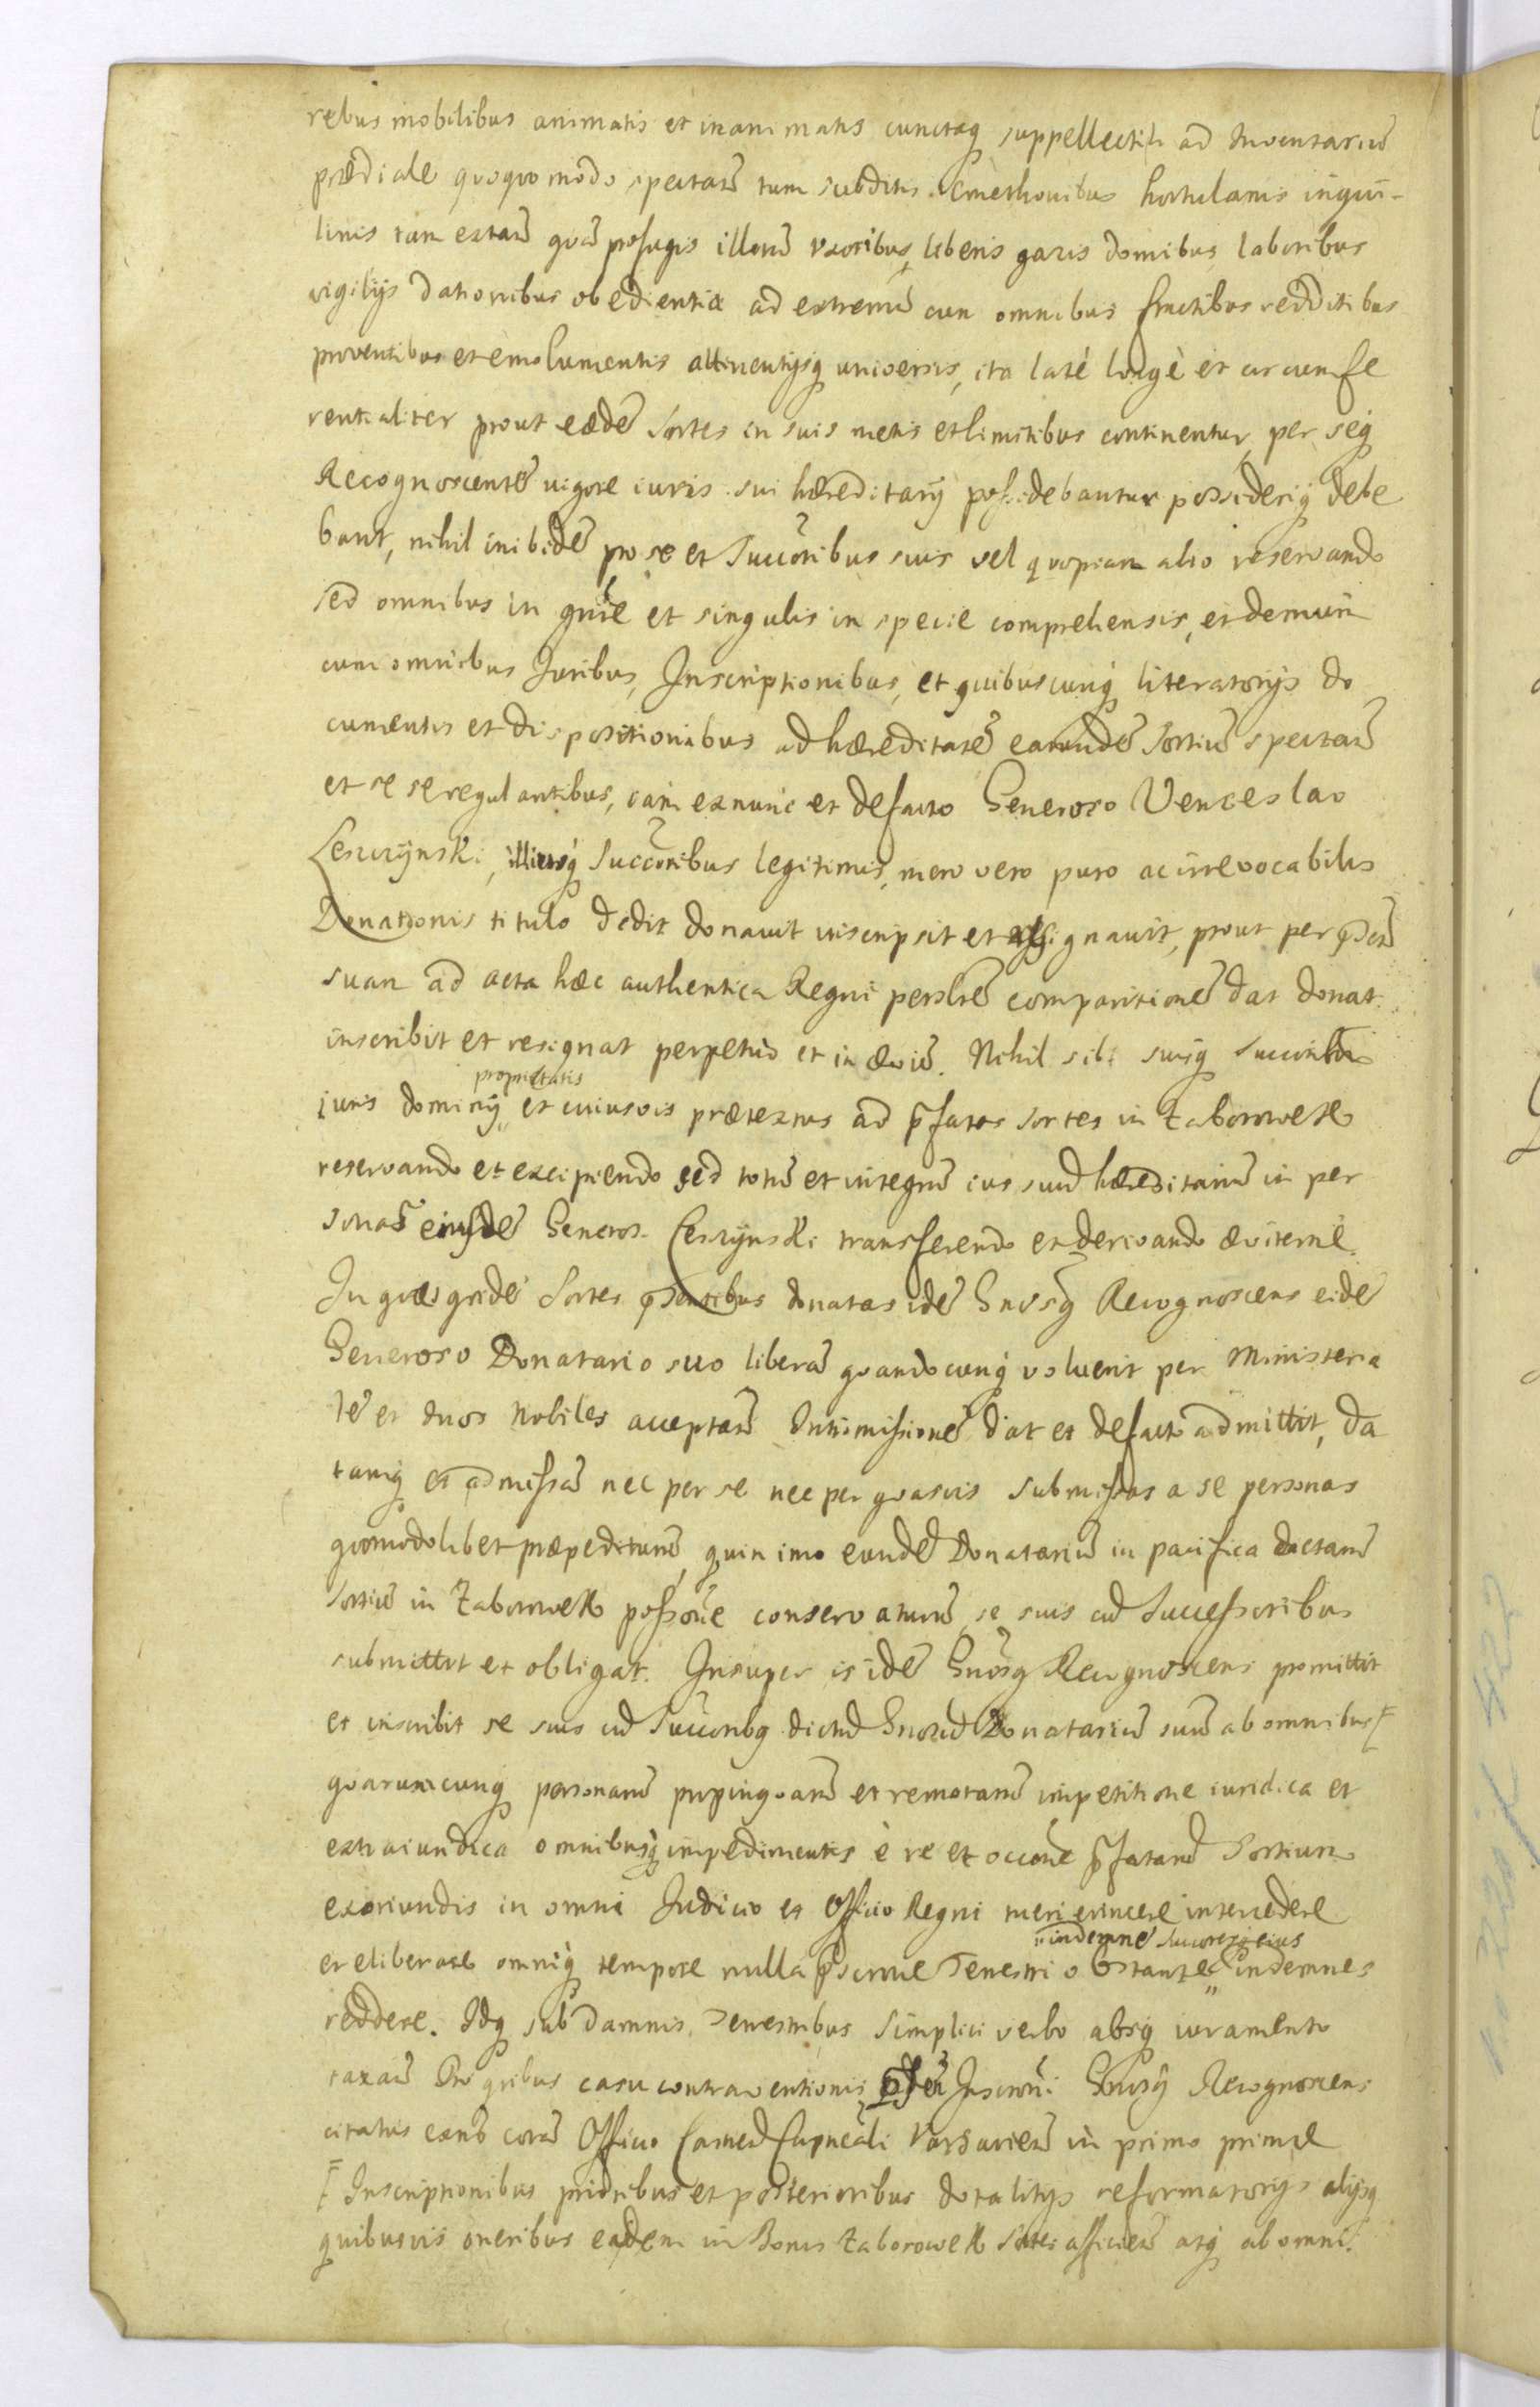 rebus mobilibus animatis et inanimatis cunctaq suppellectili ad Inventariū
prædiale quoquo modo spectan̄ tum subditis Cmethonibus hortulanis inqui-
linis tam extan̄ quā profugis illorū uxoribus, liberis gazis domibus laboribus
vigilijs dationibus obedientia ad extremū cum omnibus fructibus redditibus
proventibus et emolumentis attinentijsq universis, ita latè longè et circumfe
rentialiter prout eædē Sortes in suis metis et limitibus continentur per seq
Recognoscentē vigore iuris sui hæreditarij possidebantur possideriq debe
bant, nihil inibidē pro se et Succoribus suis vel quopiam alio reservando
sed omnibus in gnrē et singulis in specie comprehensis, et demum
cum omnibus Juribus, Inscriptionibus, et quibuscunq literatorijs do
cumentis et dispositionibus ad hæreditatē earundē Sortiū spectan̄
et se se regulantibus, iam ex nunc et defacto Generoso Venceslao
Leszczynski, illiusq Succoribus legitimis, mero vero puro ac irrevocabilis
Donationis titulo dedit donavit inscripsit et resignavit, prout per p̄ntē
suam ad acta hæc authentica Regni persolrē comparitionē dat donat
inscribit et resignat perpetuo et in ævū. Nihil sibi suisq Succoribus
proprietatis
iuris dominij et cuiusvis prætextus ad p̄fatas Sortes in Zaborowek
reservando et excipiendo sed totū et integrū ius suū hæreditariū in per
sonā eiusdē Generos. Leszczynski transferendo et derivando æviternè.
In quas quidē Sortes p̄sentibus donatas idē Gnosq Recognoscens eidē
Generoso Donatario suo liberā quandocunq voluerit per Ministeria
lē et duos Nobiles acceptan̄ Intromissionē dat et defacto admittit, da
tamq et admissā nec per se nec per quasvis submissas a se personas
quomodolibet præpediturū, quin imo eundē Donatariū in pacifica dictarū
Sortiū in Zaborowek possone conservaturū, se suis cū Successoribus
submittit et obligat. Insuper is idē Gnosq Recognoscens promittit
et inscribit se suis cū Succoribq dictū Gnosū Donatariū suū ab omnibus
quarumcunq personarū propinquarū et remotarū impetitione iuridica et
extraiuridica omnibusq impedimentis è re et occone p̄fatarū Sortium
exoriundis in omni Judicio et Officio Regni tueri evincere intercedere
indemnē Succoresq eius
et liberare omniq tempore nulla p̄scrone Terrestri obstante indemnes
reddere. Idq sub damnis terrestribus simplici verbo absq iuramento
taxan̄ Pro quibus casu contraventionis p̄sēn Inscroni Gnosq Recognoscens
citatus exnc corā Officio Castren̄ Capneali Varsavien̄ in primo primæ
Inscriptionibus prioribus et posterioribus dotalitijs reformatorijs alijsq
quibusvis oneribus easdem in Bonis Zaborowek Sortes afficien̄ atq ab omni